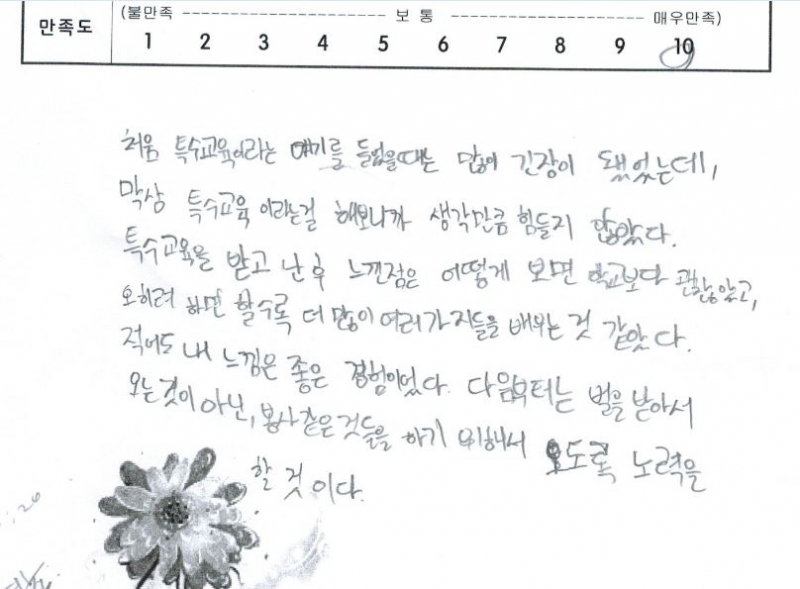 (불만족 ------------------------ 보 통 ------------------------ 매우만족)
만족도 1 2 3 4 5 6 7 8 9 10
처음 특수교육이라는 얘기를 들었을때는 많이 긴장이 됐었는데,
막상 특수교육 이라는걸 해보니까 생각만큼 힘들지 않았다.
특수교육을 받고 난 후 느낀점은 어떻게 보면 학교보다 괜찮았고,
오히려 하면 할수록 더 많이 여러가지들을 배우는 것 같았다.
적어도 내 느낌은 좋은 경험이었다. 다음부터는 벌을 받아서
오는것이 아닌, 봉사같은것들을 하기 위해서 오도록 노력을
할 것 이다.